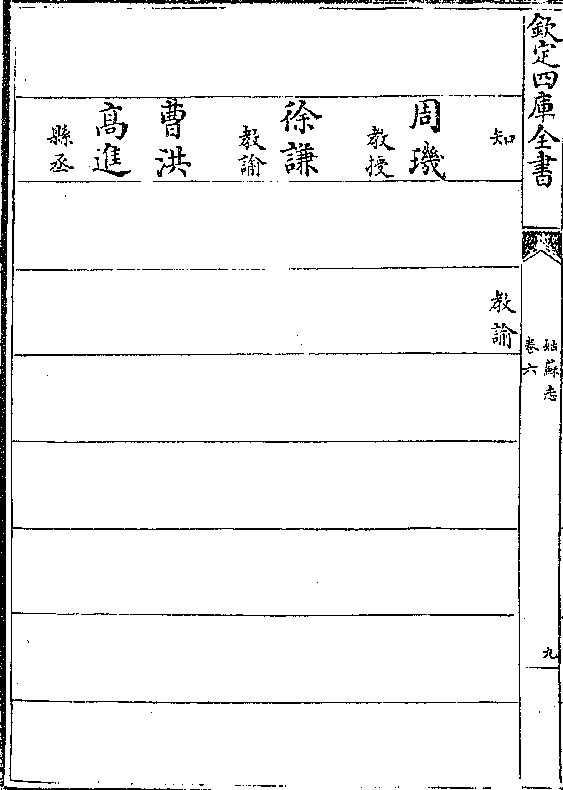 欽定四庫全書
姑蘇志
卷六
九
知
教諭
周璣
教授
徐謙
教諭
曹洪
高進
縣丞